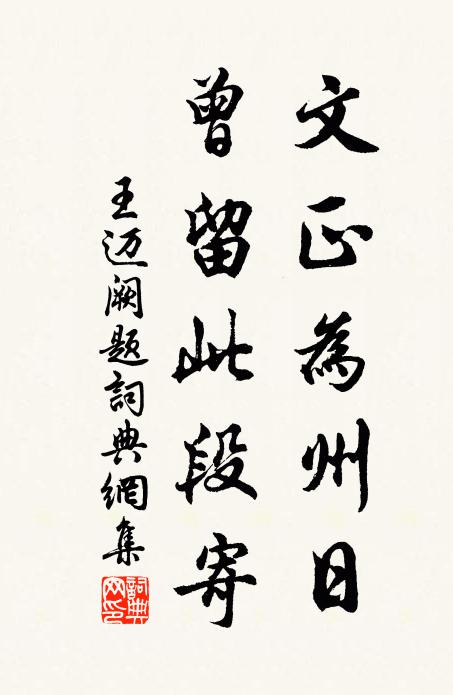 文正為州日
曾留此段寄
王迈阙题詞典網集
詞典网印